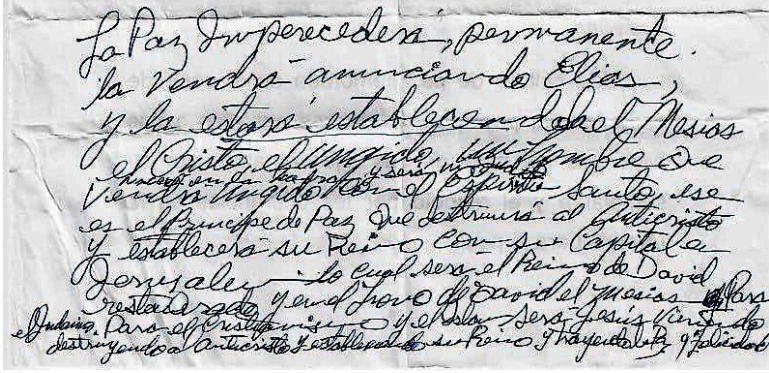 La Paz Imperecedera, permanente.
la vendrá anunciando Elías,
y la estará estableciendo el Mesías
el Cristo, el Ungido, un hombre que
nacerá en la tierra y será
vendrá Ungido con el Espíritu Santo, ese
es el Príncipe de Paz que destruirá al Anticristo
y establecerá su Reino con su Capital en
Jerusalen lo cual será el Reino de David
restaurado y en el trono de David el Mesías Para
el Judaismo. Para el Cristianismo y el Islam será Jesús viniendo
destruyendo a anticristo y estableciendo su Reino y trayendo la Paz y felicidad